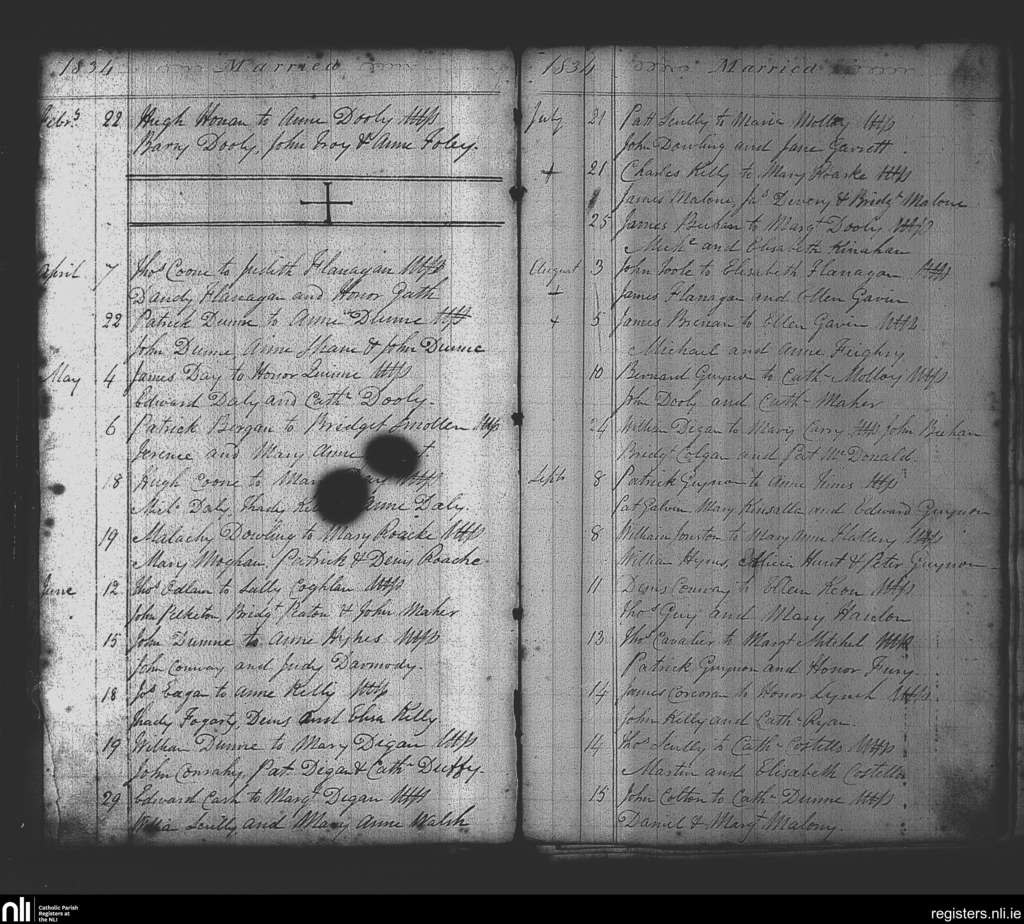 1834 Married
Febry 22 Hugh Honan to Anne Dooly Wtss
Barny Dooly, John Troy & Anne Foley.
April 7 Thos Coone to Judith Flanagan Wtss
Dandy Flanagan and Honor Gath
22 Patrick Dunne to Anne Dunne Wtss
John Dunne, Anne Shane & John Dunne
May 4 James Day to Honor Quinne Wtss
Edward Daly and Cathn Dooly.
6 Patrick Bergan to Bridget Smollen Wtss
Terence and Mary Anne
18 Hugh Coone to Mary Day Wtss
Michl Daly, Thady Anne Daly.
19 Malachy Dowling to Mary Roache Wtss
Mary Moghan, Patrick & Denis Roache
June 12 Thos Edlam to Sally Coghlan Wtss
John Pilketon, Bridgt Eaton & John Maher
15 John Dunne to Anne Hynes Wtss
John Conway and Judy Darmody.
18 Jos Eagan to Anne Kelly Wtss
Thady Fogarty, Denis and Eliza Kelly
19 William Dunne to Mary Digan Wtss
John Conrahy, Pat. Digan & Cathn Duffy.
29 Edward Cash to Margt Digan Wtss
Scully and Mary Anne Walsh
1834 Married
July 21 Patt Scully to Maria Molloy Wtss
John Dowling and Jane Garrett.
+ 21 Charles Kelly to Mary Roarke Wtss
James Malone, Jas Devery & Bridgt Malone
25 James Beehan to Margt Dooly Wtss
Michl and Elisabeth Kinahan
August 3 John Toole to Elisabeth Flanagan Wtss
+ James Flanagan and Ellen Gavin
+ 5 James Brenan to Ellen Gavin Wtss
Michael and Anne Feighry
10 Bernard Guynon to Cathn Molloy Wtss
John Dooly and Cathn Maher
24 William Digan to Mary Carry Wtss John Beehan
Bridgt Colgan and Pat McDonald
Septr 8 Patrick Guynon to Anne Wtss
Pat Galvin, Mary Kinsalla and Edward Guynon
8 William Jonston to Mary Anne Flattery Wtss
William Hynes, Alicia Hunt & Peter Guynon
11 Denis Conway to Ellen Keon Wtss
Thos Guy and Mary Hanlon
13 Thos Cavalier to Margt Mitchel Wtss
Patrick Guynon and Honor Fury.
14 James Corcoran to Honor Lynch Wtss
John Kelly and Cathn Ryan
14 Thos Scully to Cathn Costello Wtss
Martin and Elisabeth Costello
15 John Colton to Cathn Dunne Wtss
Daniel & Margt Malony.
nli Catholic Parish
Registers at
the NLI
registers.nli.ie